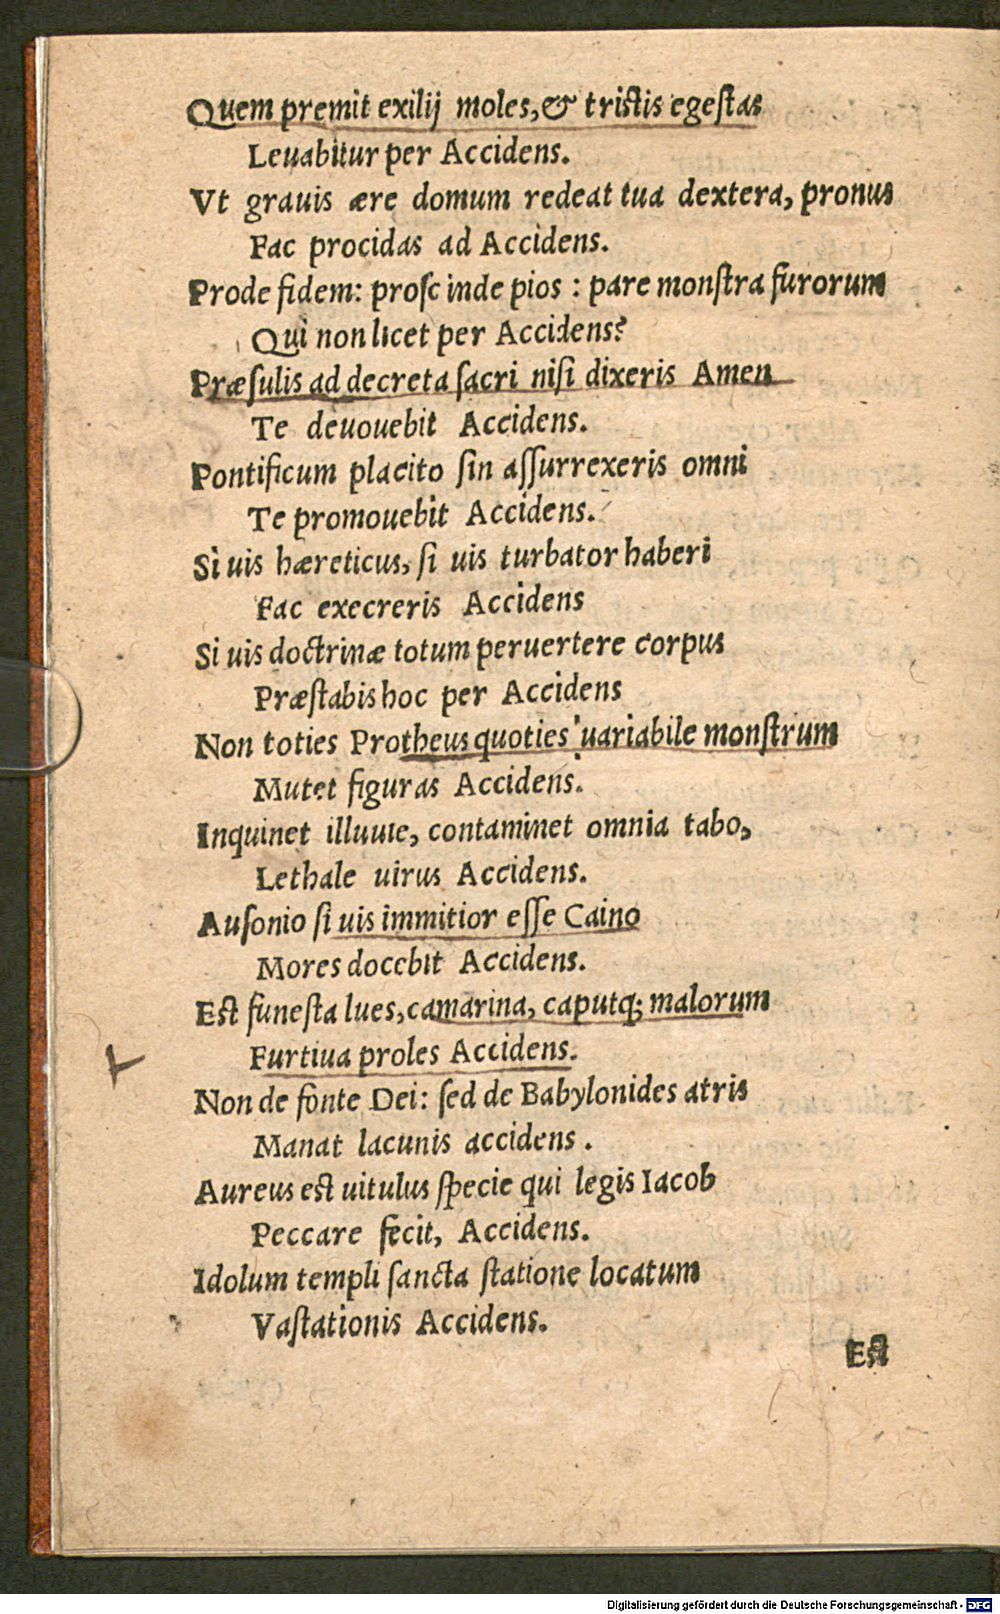 Quem premit exilij moles, & tristis egestas
Leuabitur per Accidens.
Vt grauis ære domum redeat tua dextera, pronus
Fac procidas ad Accidens.
Prode fidem: proscinde pios : pare monstra furorum
Qui non licet per Accidens?
Præsulis ad decreta sacri nisi dixeris Amen
Te deuouebit Accidens.
Pontificum placito sin assurrexeris omni
Te promouebit Accidens.
Si uis hæreticus, si uis turbator haberi
Fac execreris Accidens
Si uis doctrinæ totum peruertere corpus
Præstabis hoc per Accidens
Non toties Protheus quoties uariabile monstrum
Mutet figuras Accidens.
Inquinet illuuie, contaminet omnia tabo,
Lethale uirus Accidens.
Ausonio si uis immitior esse Caino
Mores docebit Accidens.
Est funesta lues, camarina, caputq; malorum
Furtiua proles Accidens.
Non de fonte Dei: sed de Babylonides atris
Manat lacunis accidens .
Aureus est uitulus specie qui legis Iacob
Peccare fecit, Accidens.
Idolum templi sancta statione locatum
Vastationis Accidens.
Est
Digitalisierung gefördert durch die Deutsche Forschungsgemeinschaft - DFG